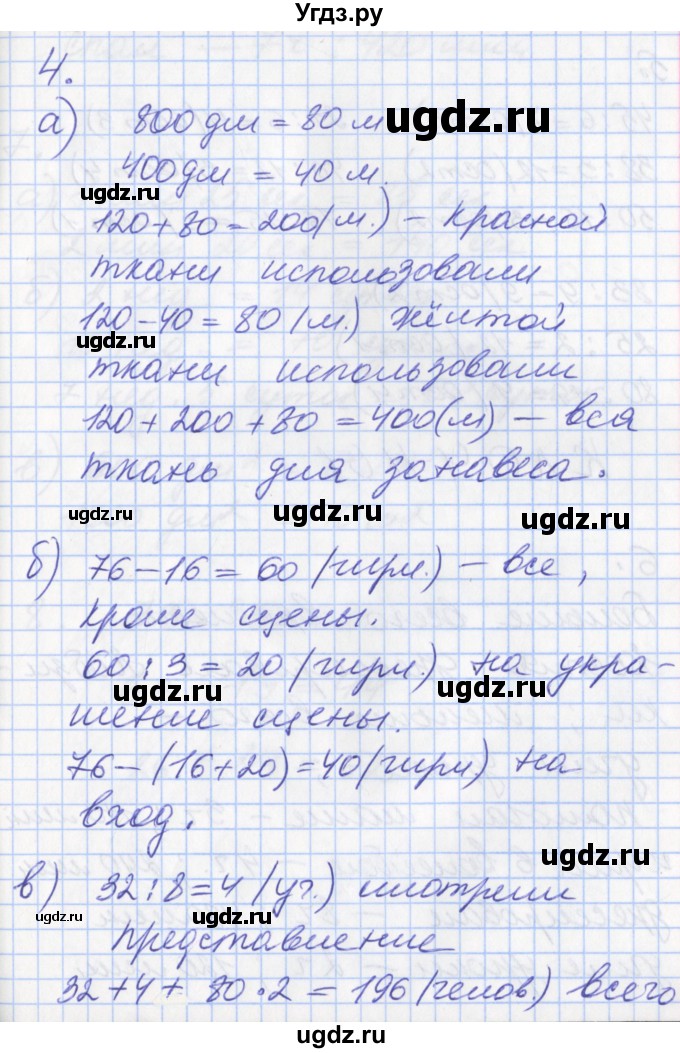 Угдз.ру
4.
а) 800 дм = 80 м
ugdz.ru
400 дм = 40 м.
ugdz.ru
120 + 80 = 200 (м.) – красной
ugdz.ru
ткани использовали
120 - 40 = 80 (м.) жёлтой
ugdz.ru
ugdz.ru
ткани использовали
120 + 200 + 80 = 400 (м) – вся
ugdz.ru
ткань для занавеса.
ugdz.ru
ugdz.ru
ugdz.ru
б) 76 – 16 = 60 (гирл.) – все,
кроме сцены.
60 : 3 = 20 (гирл.) на укра-
ugdz.ru
ugdz.ru
шение сцены.
76 – (16 + 20) = 40 (гирл) на
вход.
ugdz.ru
ugdz.ru
в) 32 : 8 = 4 (уч.) смотрели
ugdz.ru
ugdz.ru
ugdz.ru
представление
32 + 4 + 80 · 2 = 196 (челов.) всего
ugdz.ru